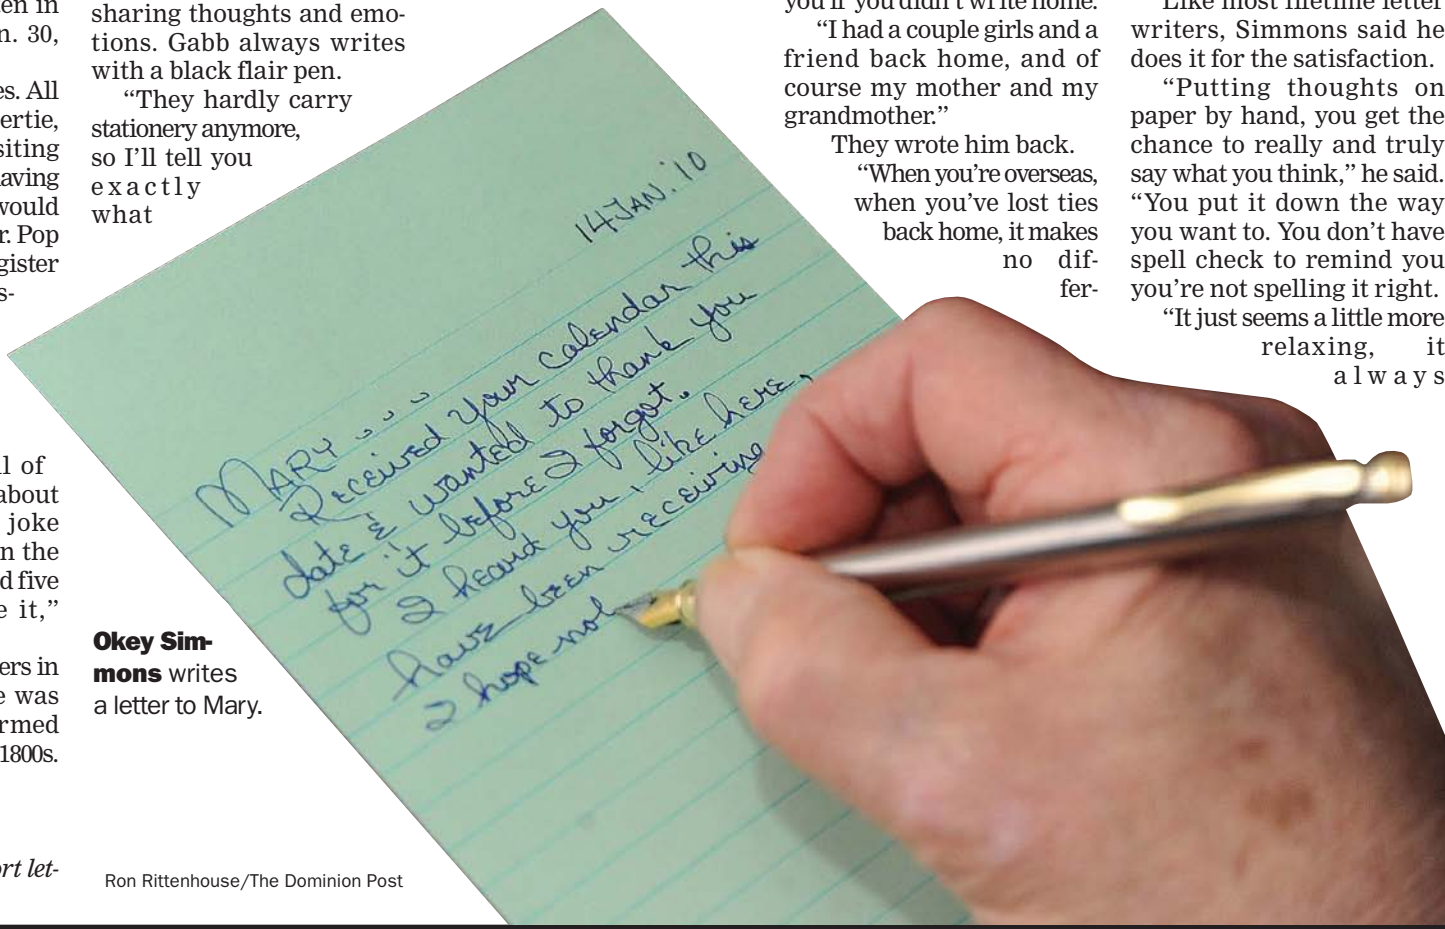 en in
n. 30,
es. All
ertie,
siting
aving
would
r. Pop
gister
s-
ll of
about
joke
n the
d five
e it,”
ers in
e was
rmed
1800s.
rt let-
sharing thoughts and emo-
tions. Gabb always writes
with a black flair pen.
“They hardly carry
stationery anymore,
so I’ll tell you
exactly
what
14 JAN. '10
MARY . . .
Received your calendar this
date & wanted to thank you
for it before I forgot.
I heard you, like here,
have been receiving
I hope not
Okey Sim-
mons writes
a letter to Mary.
Ron Rittenhouse/The Dominion Post
you if you didn’t write home.
“I had a couple girls and a
friend back home, and of
course my mother and my
grandmother.”
They wrote him back.
“When you’re overseas,
when you’ve lost ties
back home, it makes
no dif-
fer-
Like most lifetime letter
writers, Simmons said he
does it for the satisfaction.
“Putting thoughts on
paper by hand, you get the
chance to really and truly
say what you think,” he said.
“You put it down the way
you want to. You don’t have
spell check to remind you
you’re not spelling it right.
“It just seems a little more
relaxing, it
always